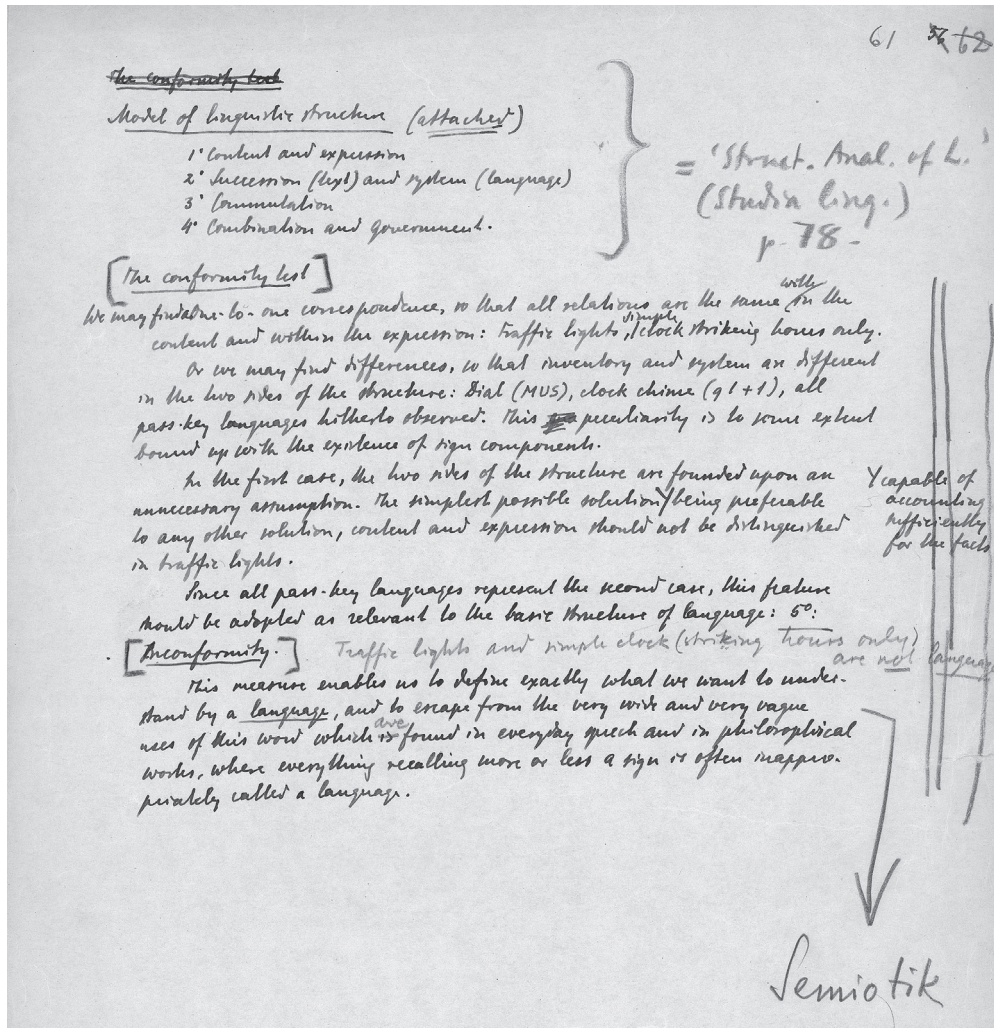 61 56 62
The conformity test
Model of linguistic structure (attached)
1° Content and expression
2° Succession (text) and system (language)
3° Commutation
4° Combination and government.
= 'Struct. Anal. of L.'
(Studia ling.)
p. 78 -
[The conformity test]
with
We may find a one-to-one correspondence, so that all relations are the same in the
simple
content and within the expression: traffic lights, clock striking hours only.
Or we may find differences, so that inventory and system are different
in the two sides of the structure: Dial (MUS), clock chime (q1+1), all
pass-key languages hitherto observed. This peculiarity is to some extent
bound up with the existence of sign components.
In the first case, the two sides of the structure are founded upon an
unnecessary assumption. The simplest possible solution being preferable
to any other solution, content and expression should not be distinguished
in traffic lights.
capable of
accounting
sufficiently
for the facts
Since all pass-key languages represent the second case, this feature
should be adopted as relevant to the basic structure of language: 5°:
[Inconformity.] Traffic lights and simple clock (striking hours only)
are not language
This measure enables us to define exactly what we want to under-
stand by a language, and to escape from the very wide and very vague
are
uses of this word which is found in everyday speech and in philosophical
works, where everything recalling more or less a sign is often inappro-
priately called a language.
Semiotik